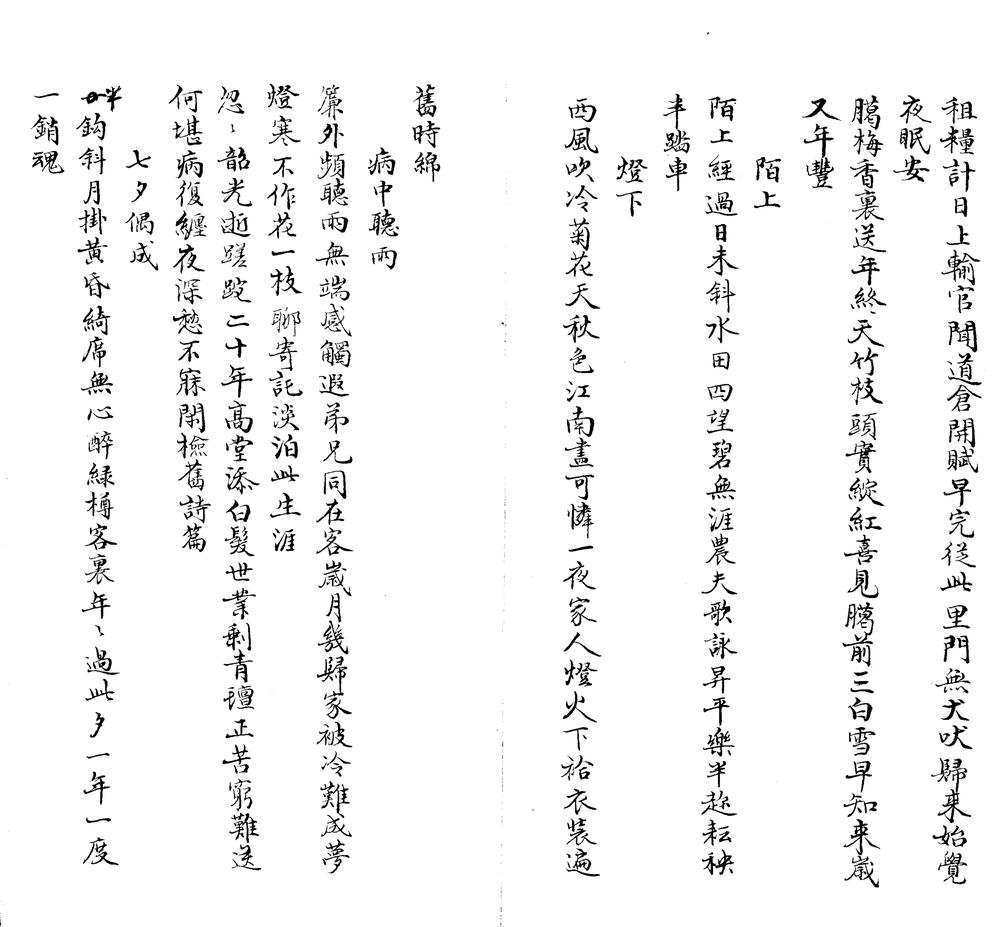 租糧計日上輸官聞道倉開賦早完從此里門無犬吠歸來始覺
夜眠安
臈梅香裏送年終天竹枝頭實綻紅喜見臈前三白雪早知來歲
又年豐
陌上
陌上經過日未斜水田四望碧無涯農夫歌詠昇平樂半趂耘秧
半踏車
燈下
西風吹冷菊花天秋色江南盡可憐一夜家人燈火下袷衣裝遍
舊時綿
病中聽雨
簾外頻聽雨無端感觸遐弟兄同在客歲月幾歸家被冷難成夢
燈寒不作花一枝聊寄託淡泊此生涯
忽〻韶光逝蹉跎二十年高堂添白髮世業剩青氊正苦窮難送
何堪病復纏夜深愁不寐閑檢舊詩篇
七夕偶成
半鈎斜月掛黃昏綺席無心醉緑樽客裏年〻過此夕一年一度
一銷魂